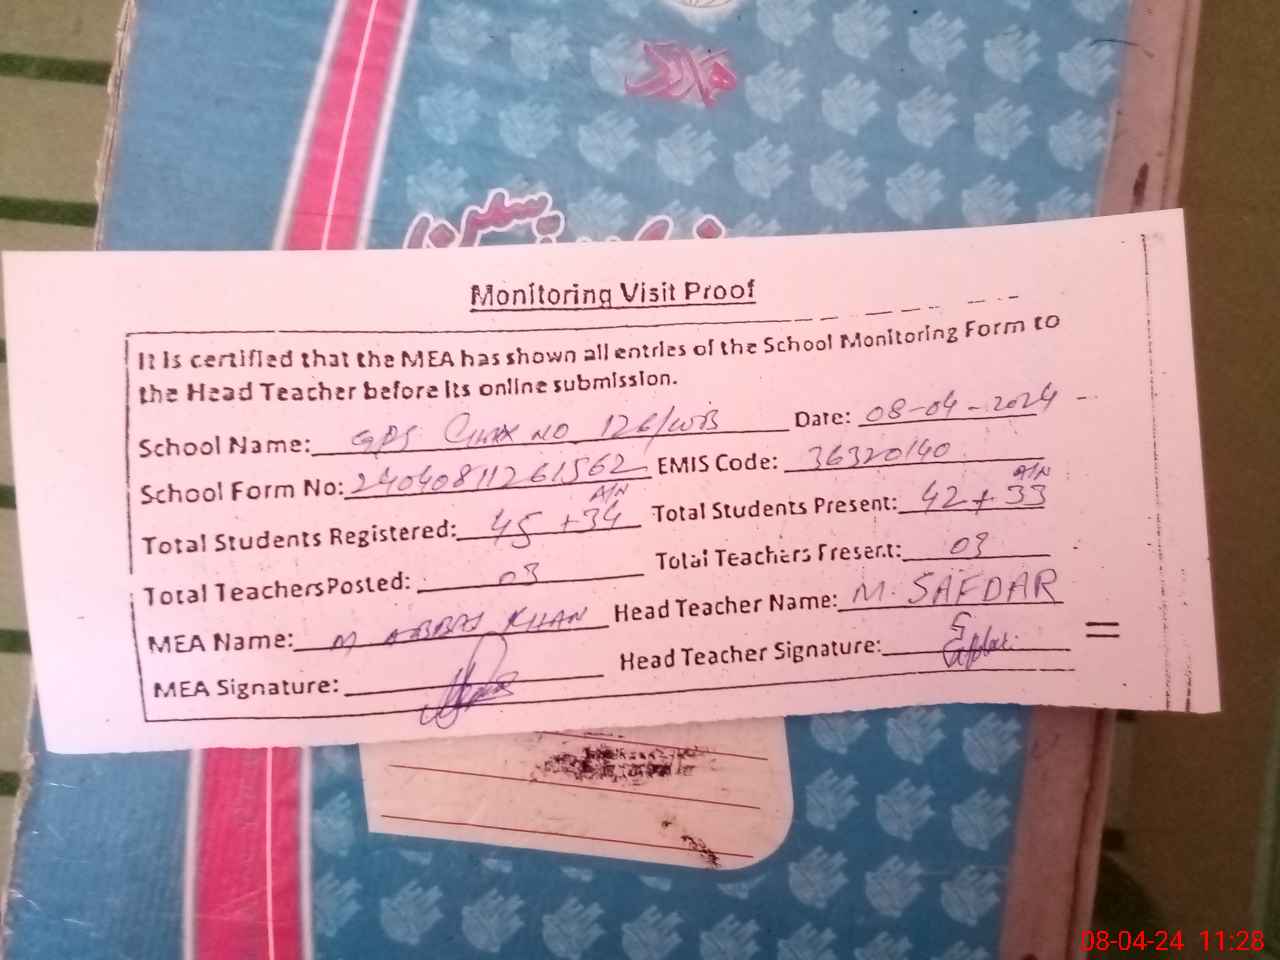 Monitoring Visit Proof
It is certified that the MEA has shown all entries of the School Monitoring Form to
the Head Teacher before its online submission.
School Name: GPS Chak NO 126/WB Date: 08-04-2024
School Form No: 24040811261562 EMIS Code: 36320140
Total Students Registered: 45 + 34 A/N Total Students Present: 42 + 33 A/N
Total Teachers Posted: 03 Total Teachers Present: 03
MEA Name: M ABBAS KHAN Head Teacher Name: M. SAFDAR
MEA Signature: Head Teacher Signature: Safdar
08-04-24 11:28